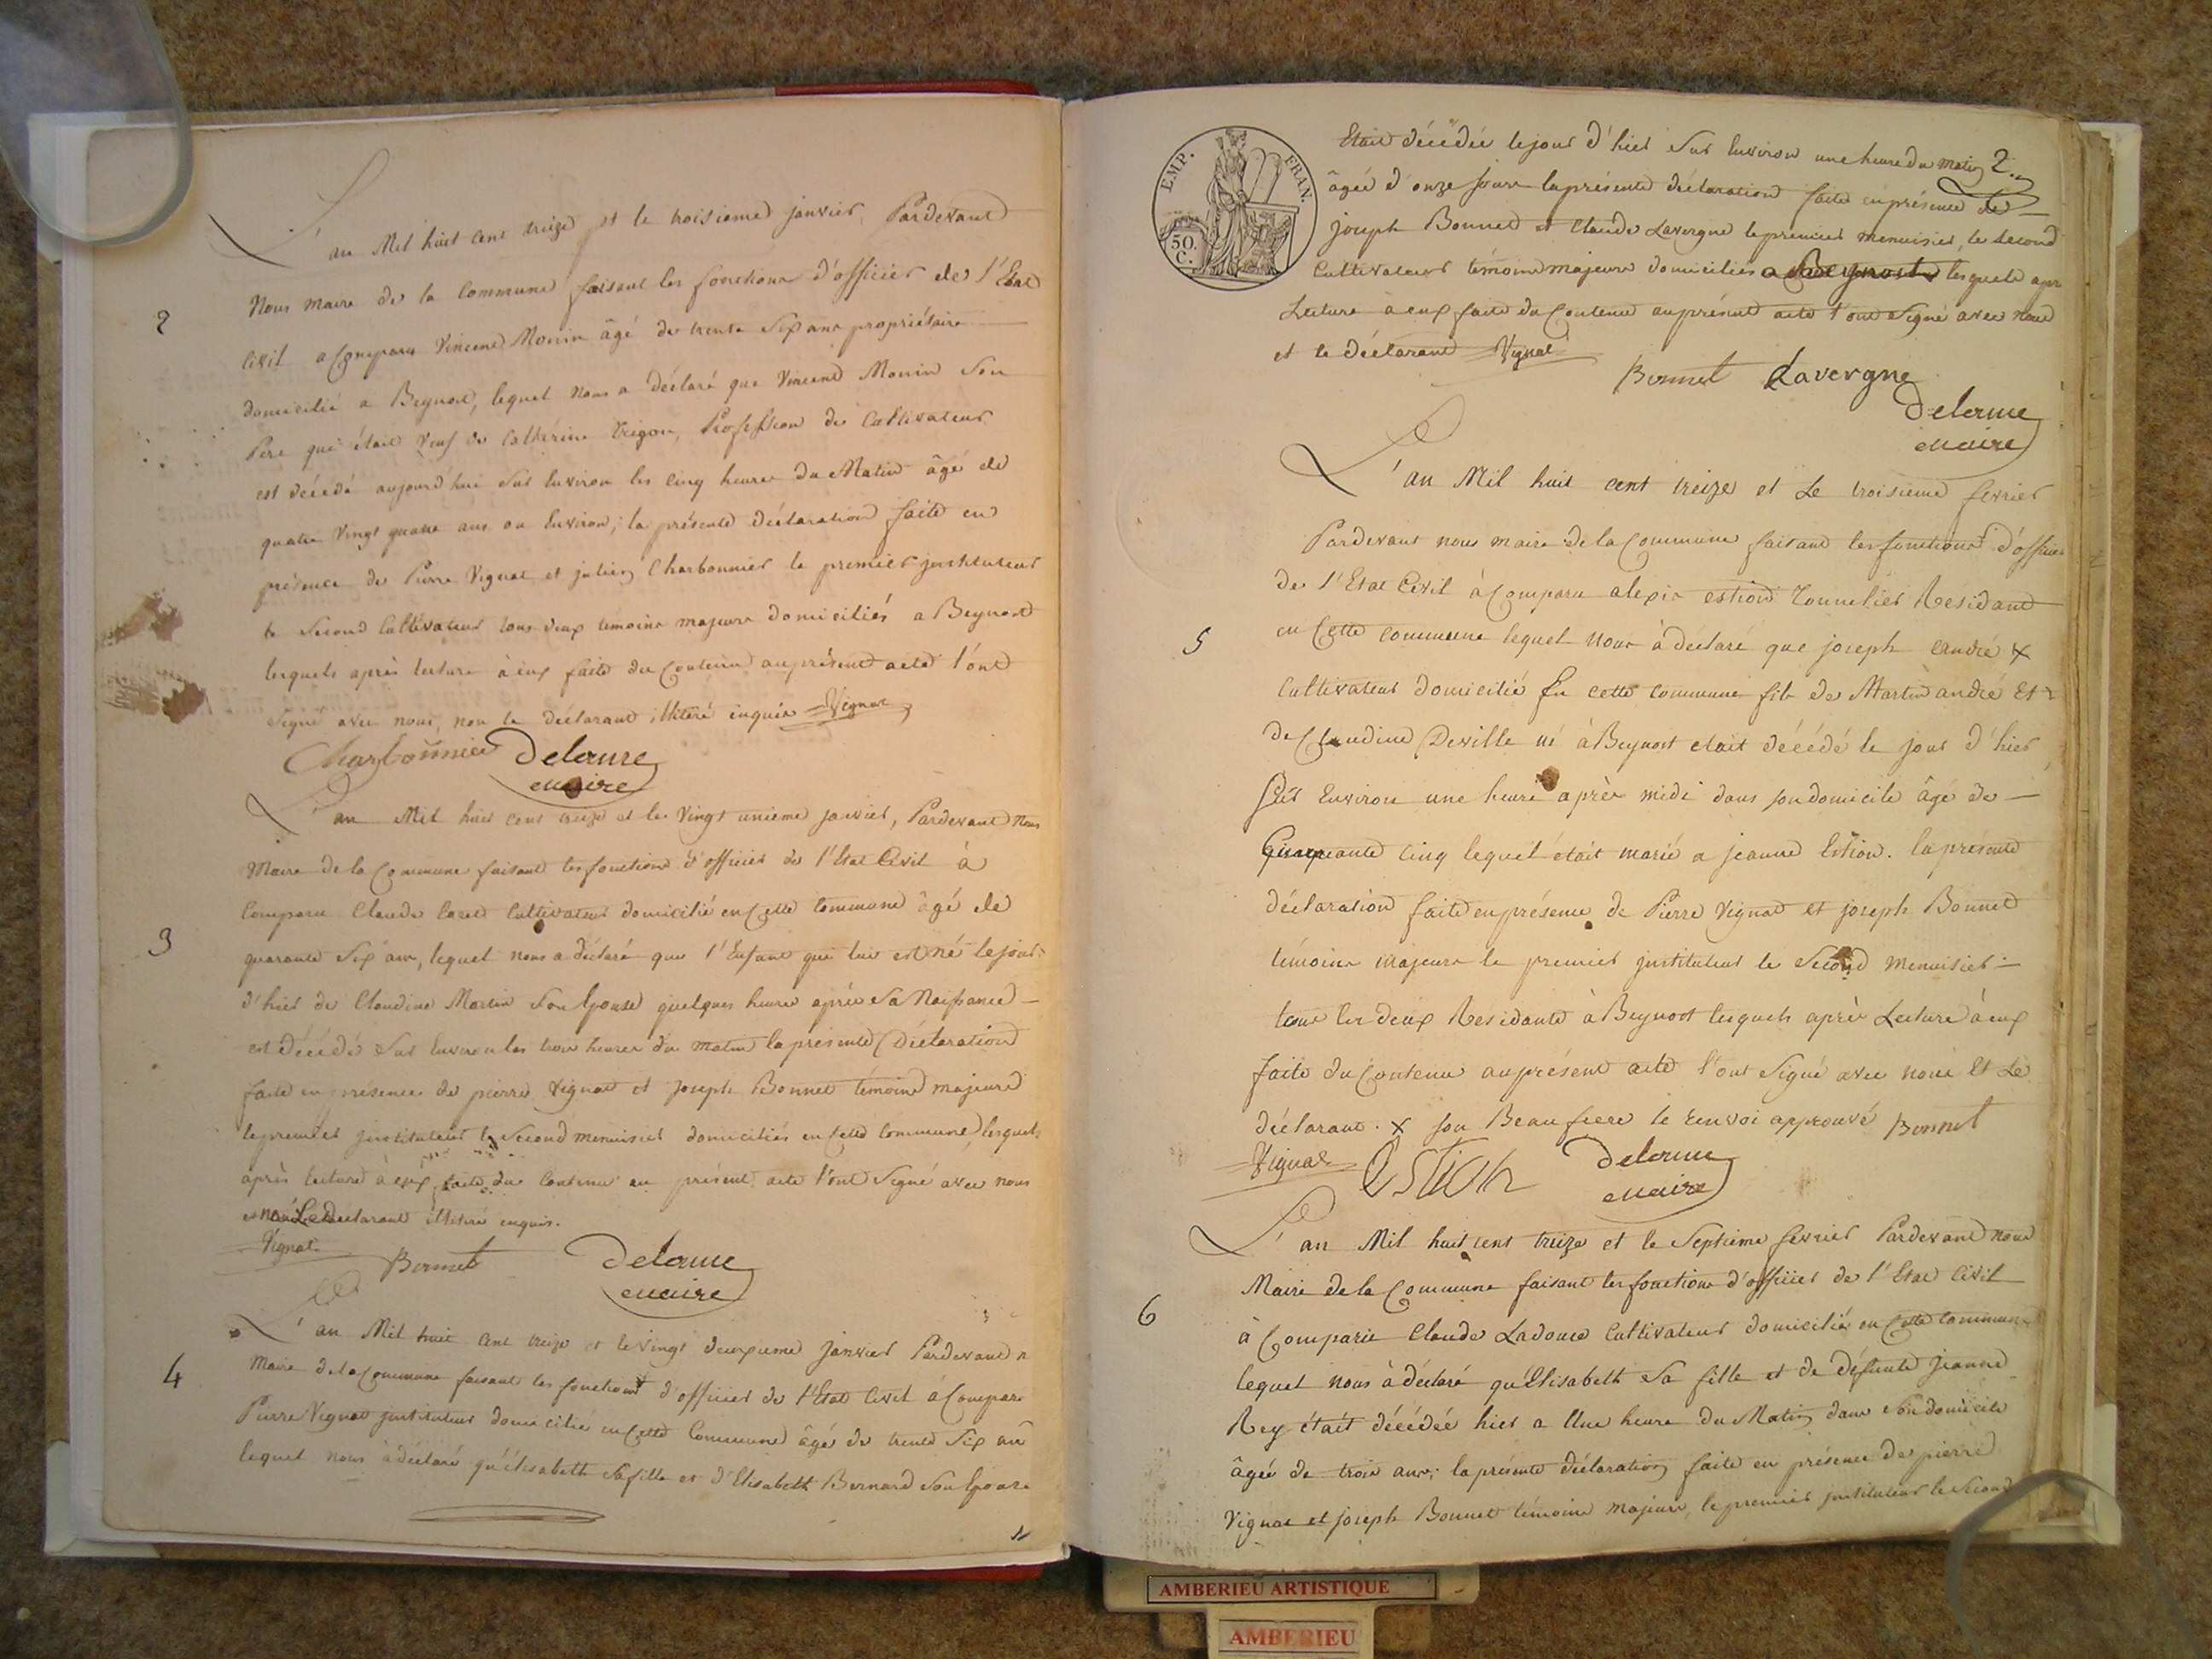 L'an Mil huit cent treize et le troisieme janvier, Pardevant
Nous maire de la Commune faisant les fonctions d'officier de l'Etat
2
Civil a Comparu Vincent Monin âgé de trente Six ans propriétaire
domicilié a Beynost, lequel nous a déclaré que Vincent Monin Son
Pere qui était Veuf de Catherine Trigon, Profession de Cultivateur
est décédé aujourd'hui Sur Environ les cinq heures du Matin âgé de
quatre Vingt quatre ans ou Environ; la présente déclaration faite en
présence de Pierre Vignat et julien Charbonnier le premier jnstituteur
le Second Cultivateur tous deux témoins majeurs domiciliés a Beynost
lesquels après lecture à eux faite du Contenu au présent acte l'ont
Signé avec nous, non le déclarant illitéré enquis Vignat
Charbonnier Delorme
maire
L'an Mil huit cent treize et le Vingt unieme janvier, Pardevant Nous
Maire de la Commune faisant les fonctions d'officier de l'Etat Civil à
Comparu Claude Cavet Cultivateur domicilié en Cette Commune âgé de
3
quarante Six ans, lequel nous a déclaré que l'Enfant qui lui est né le jour
d'hier de Claudine Martin Son Epouse quelques heures après Sa Naissance
est décédé Sur Environ les trois heures du matin la présente Déclaration
faite en presence de pierre Vignat et joseph Bonnet témoins majeurs
le premier jnstituteur le Second menuisier domiciliés en Cette Commune, lesquels
après lecture à eux faite du Contenu au présent acte l'ont Signé avec nous
non Le declarant illitéré enquis.
Vignat Bonnet Delorme
maire
L'an Mil huit cent treize et le Vingt deuxieme Janvier Pardevant n
4
Maire de la Commune faisant les fonctions d'officier de l'Etat Civil à Comparu
Pierre Vignat jnstituteur domicilié en Cette Commune âgé de trente Six ans
lequel nous à déclaré qu'élisabeth Sa fille et d'Elisabeth Bernard Son Epouse
EMP. FRAN.
50.
C.
Etait décédée le jour d'hier Sur Environ une heure du matin 2.
âgée d'onze jours la présente déclaration faite en présence de
joseph Bonnet et Claude Lavergne le premier menuisier, le Second
Cultivateur témoins majeurs domiciliés a Beynost lesquels apr
Lecture à eux faite du Contenu au présent acte l'ont Signé avec nous
et le déclarant Vignat
Bonnet Lavergne
Delorme
maire
L'an Mil huit cent treize et Le troisieme fevrier
Pardevant nous maire de la Commune faisant les fonctions d'officier
de l'Etat Civil à Comparu alexis estion Tonnelier Residant
5
en Cette commune lequel nous à déclaré que joseph andré x
Cultivateur domicilié En cette commune fils de Martin andré Et
de Claudine Deville né à Beynost etait décédé le jour d'hier
Sur Environ une heure après midi dans son domicile âgé de
Cinquante cinq lequel était marié a jeanne Estion. la présente
déclaration faite en présence de Pierre Vignat et joseph Bonnet
témoins majeurs le premier jnstituteur le Second menuisier
tous les deux Residants à Beynost lesquels après Lecture à eux
faite du Contenu au présent acte l'ont Signé avec nous Et Le
déclarant. x son Beau frere le renvoi approuvé Bonnet
Vignat Estion Delorme
maire
L'an Mil huit cent treize et le Septieme fevrier Pardevant nous
Maire de la Commune faisant les fonctions d'officier de l'Etat Civil
6
à Comparu Claude Ladouce Cultivateur domicilié en Cette Commune
lequel nous à déclaré qu'Elisabeth Sa fille et de défunte Jeanne
Rey était décédée hier a Une heure du Matin dans Son domicile
âgée de trois ans; la présente déclaration faite en présence de pierre
Vignat et joseph Bonnet témoins majeurs, le premier jnstituteur le Second
AMBERIEU ARTISTIQUE
AMBERIEU